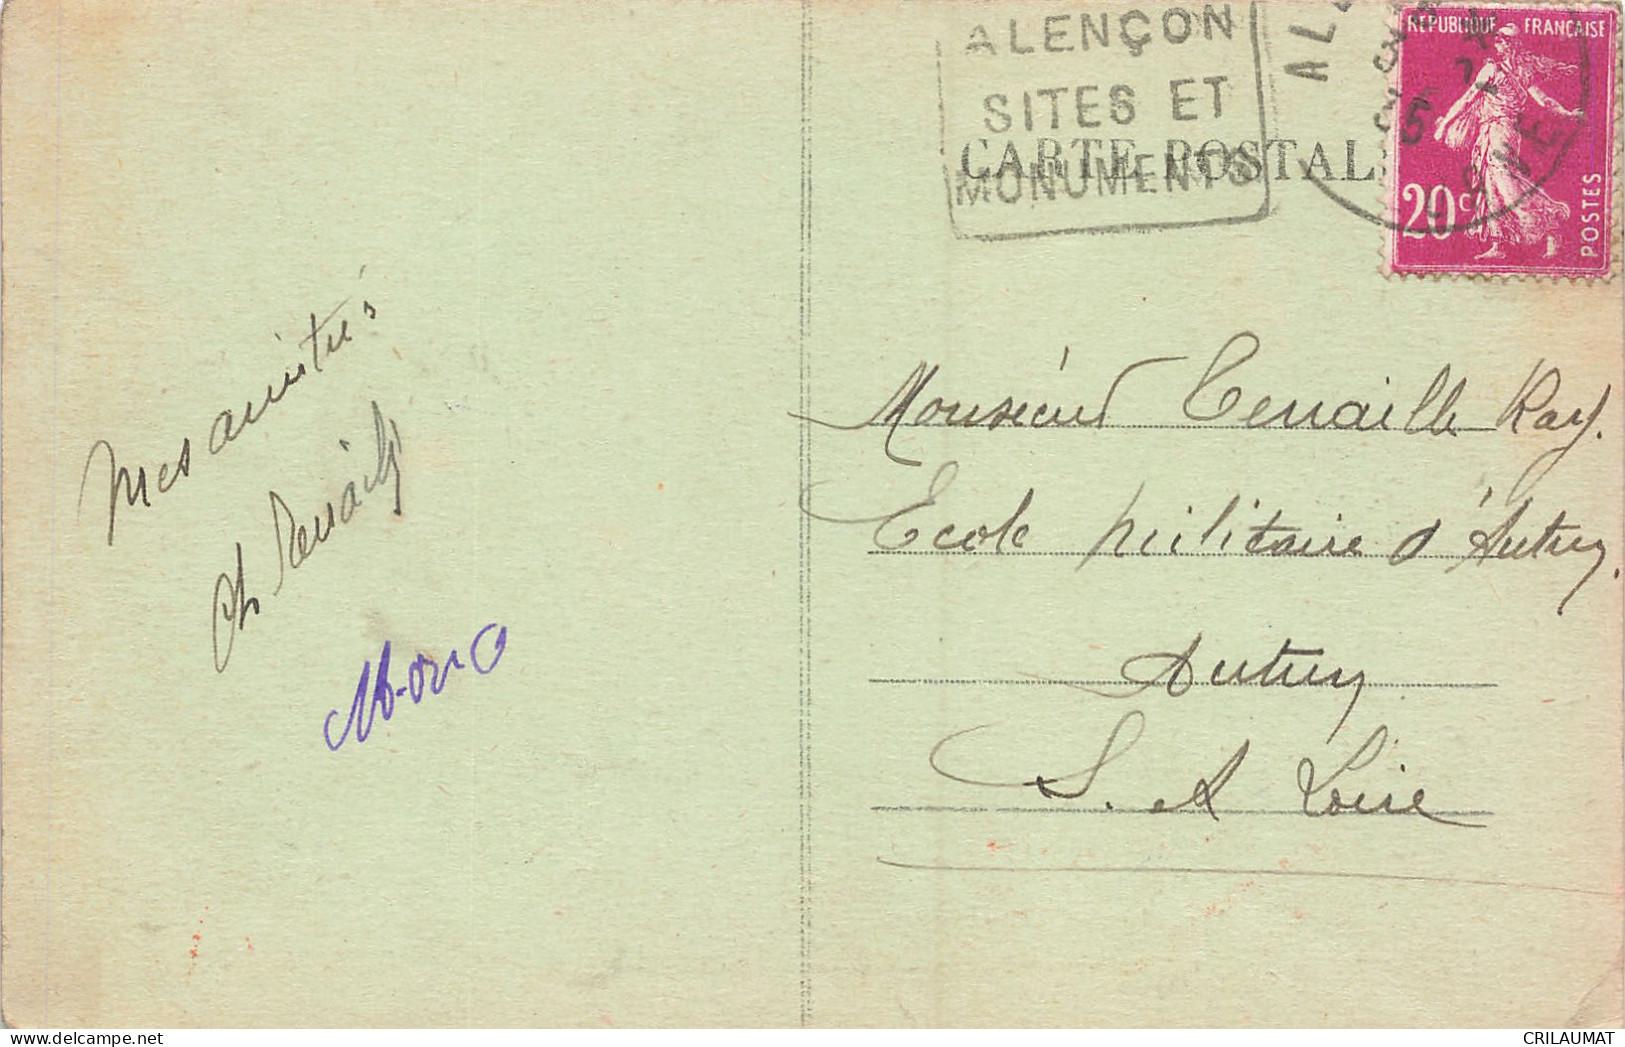 ALENÇON
SITES ET
MONUMENTS
CARTE POSTALE
REPUBLIQUE FRANÇAISE
20c
POSTES
Mes amitiés
Monsieur Tenaille Ray.
Ecole militaire d'Autun.
Autun
S. et Loire
www.delcampe.net
CRILAUMAT